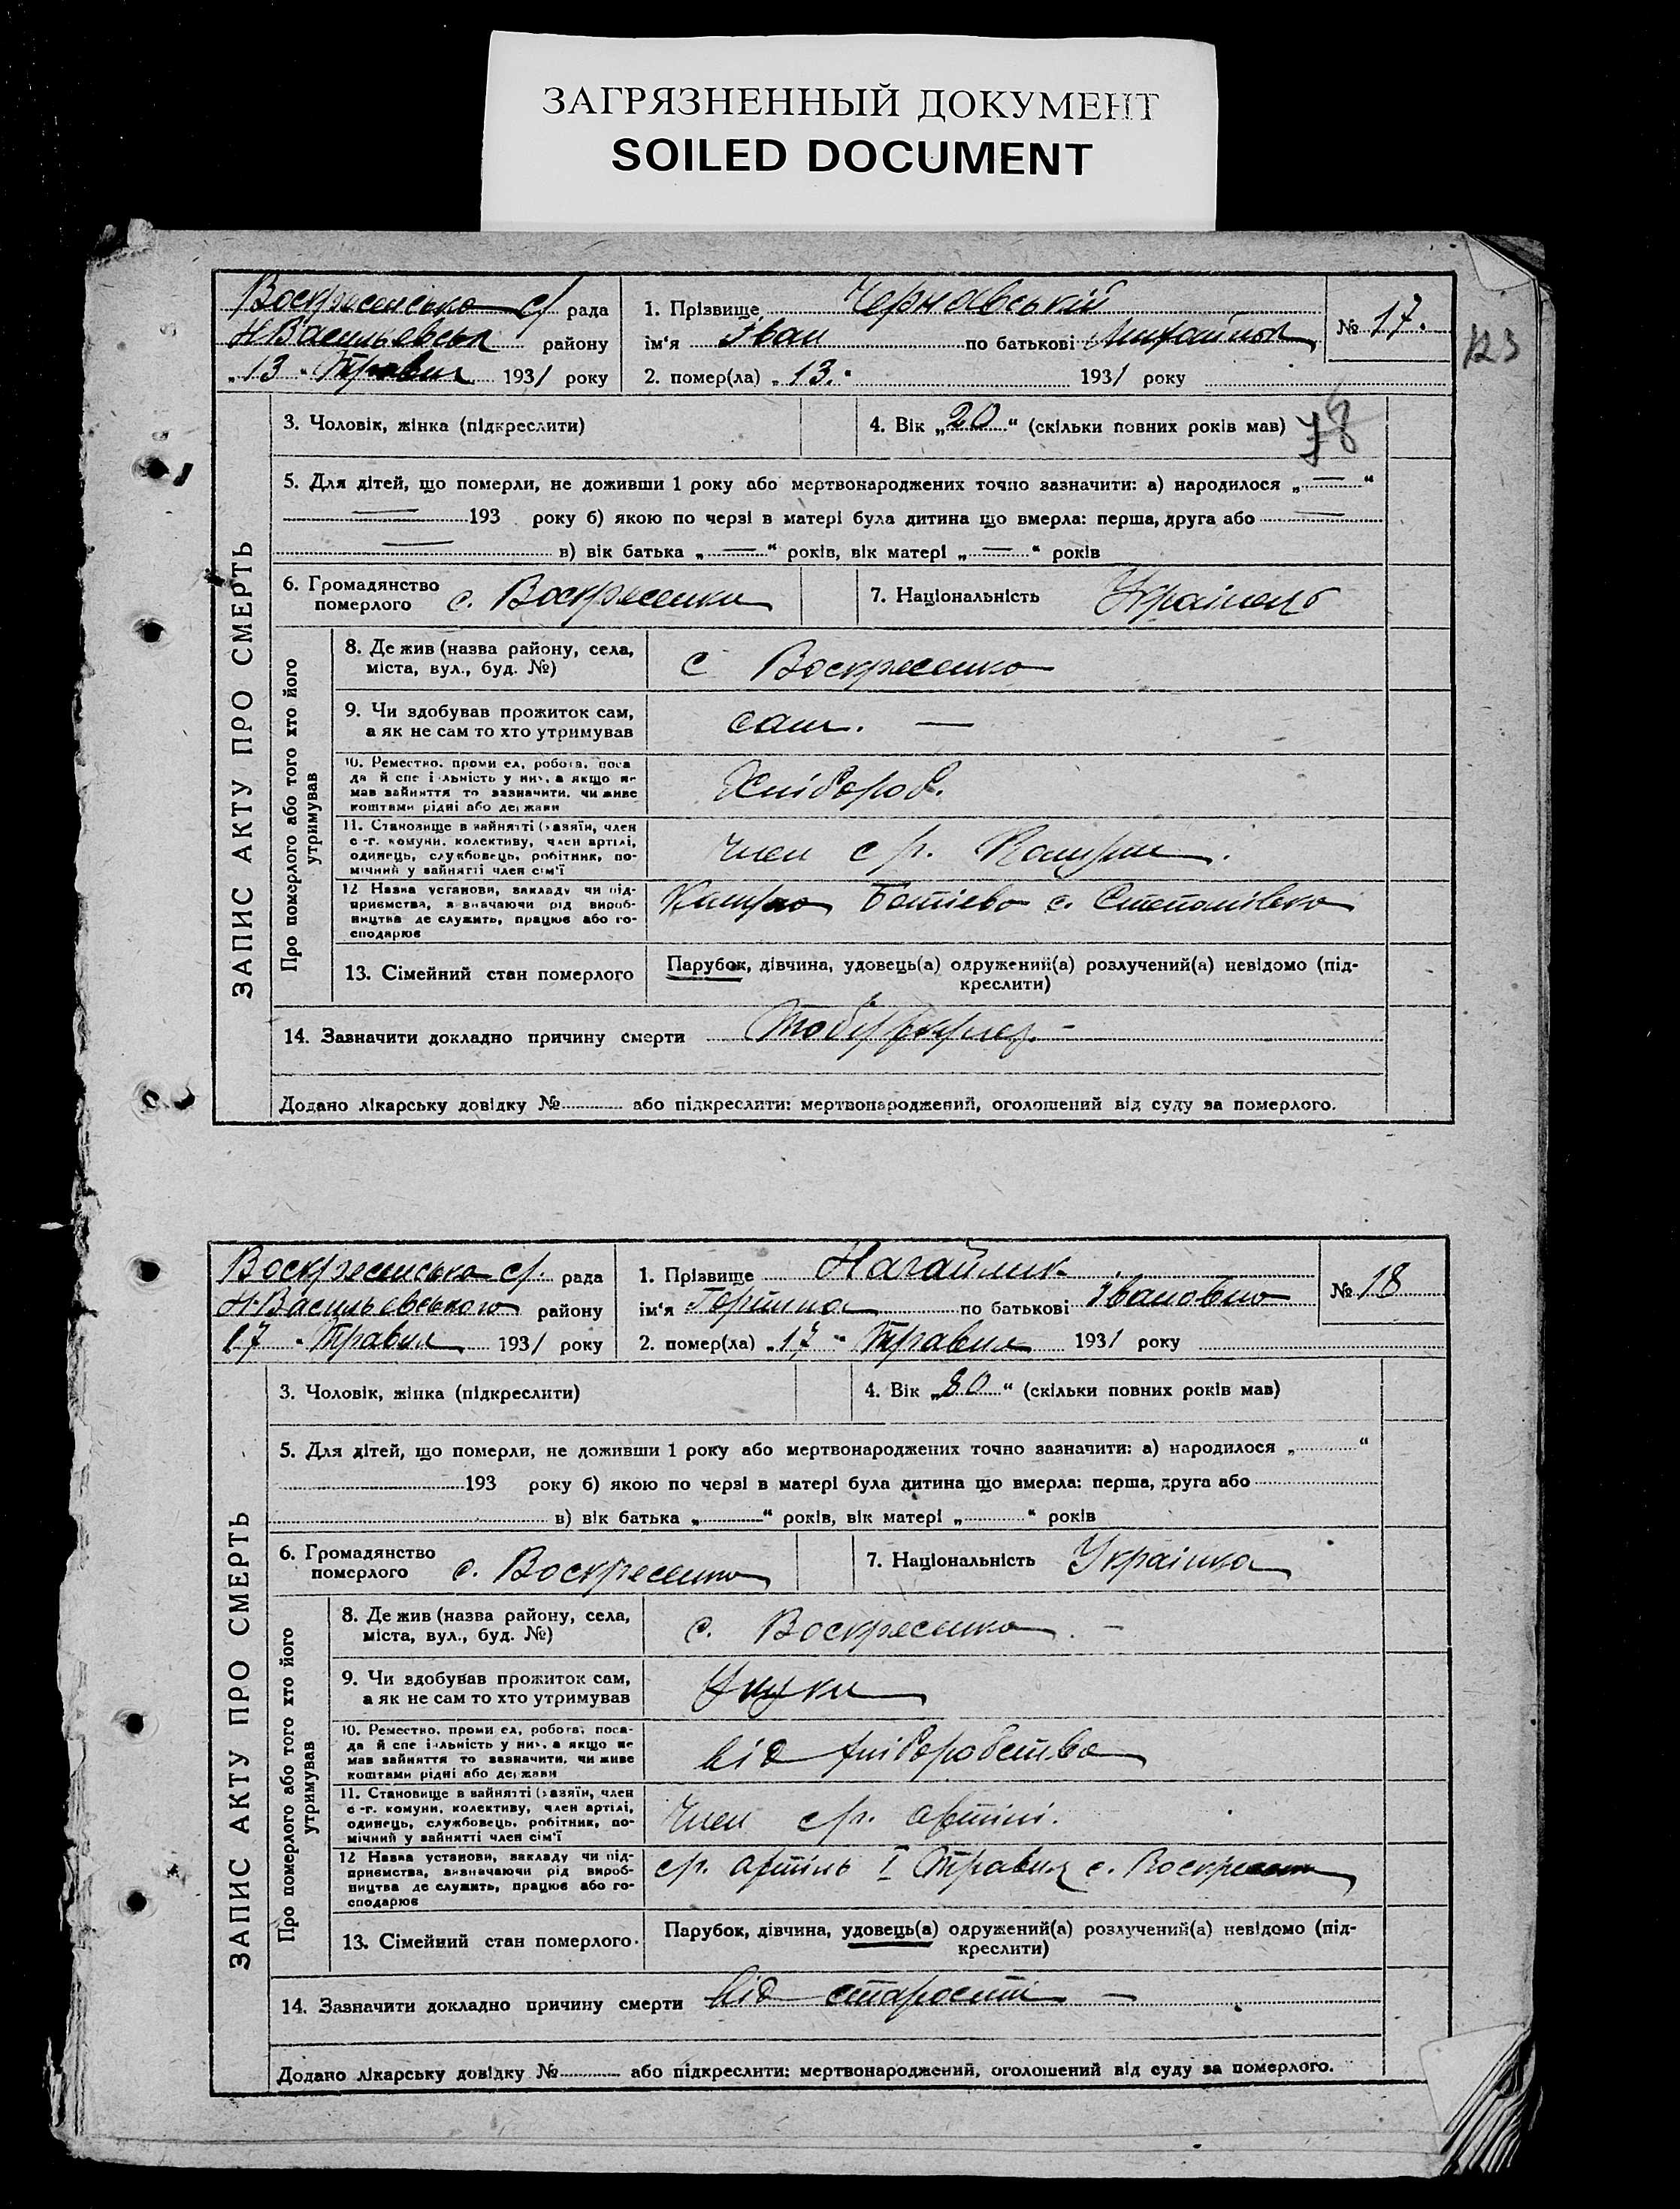 ЗАГРЯЗНЕННЫЙ ДОКУМЕНТ
SOILED DOCUMENT
123
Воскресенська с/ рада
Н Васильевськ району
„13“ Травня 1931 року
1. Прізвище Чернявській
ім‘я Іван по батькові Михайлов
2. помер(ла) „13.“ 1931 року
№ 17.
ЗАПИС АКТУ ПРО СМЕРТЬ
3. Чоловік, жінка (підкреслити)
4. Вік „20“ (скільки повних років мав)
5. Для дітей, що померли, не доживши 1 року або мертвонароджених точно зазначити: а) народилося „—“
— 193 року б) якою по черзі в матері була дитина що вмерла: перша, друга або —
— в) вік батька „—“ років, вік матері „—“ років
6. Громадянство померлого с. Воскресенки
7. Національність Українець
Про померлого або того хто його утримував
8. Де жив (назва району, села,
міста, вул., буд. №)
с Воскресенка
9. Чи здобував прожиток сам,
а як не сам то хто утримував
сам. —
10. Ремество, проми ел, робота, поса
да й спе і льність у них, а якщо не
мав зайняття то зазначити, чи живе
коштами рідні або держави
Хлібороб.
11. Становище в зайнятті (хазяїн, член
с-г. комуни, колективу, член артілі,
одинець, службовець, робітник, по-
мічний у зайнятті член сім‘ї
член с/г.
12 Назва установи, закладу чи під-
приємства, зазначаючи рід вироб-
ництва де служить, працює або го-
сподарює
с. Степанівка
13. Сімейний стан померлого
Парубок, дівчина, удовець(а) одружений(а) розлучений(а) невідомо (під-
креслити)
14. Зазначити докладно причину смерти
Додано лікарську довідку № або підкреслити: мертвонароджений, оголошений від суду за померлого.
Воскресенська с/. рада
Н-Васильевського району
17 “ Травня 1931 року
1. Прізвище Нагайлик
ім‘я Горпина по батькові Івановно
2. помер(ла) „17“ Травня 1931 року
№ 18
ЗАПИС АКТУ ПРО СМЕРТЬ
3. Чоловік, жінка (підкреслити)
4. Вік „80“ (скільки повних років мав)
5. Для дітей, що померли, не доживши 1 року або мертвонароджених точно зазначити: а) народилося „ “
193 року б) якою по черзі в матері була дитина що вмерла: перша, друга або
в) вік батька „ “ років, вік матері „ “ років
6. Громадянство померлого с. Воскресенка
7. Національність Українка
Про померлого або того хто його утримував
8. Де жив (назва району, села,
міста, вул., буд. №)
с. Воскресенка. –
9. Чи здобував прожиток сам,
а як не сам то хто утримував
Внуки
10. Ремество, проми ел, робота, поса-
да й спе іальність у них, а якщо не
мав зайняття то зазначити, чи живе
коштами рідні або держави
від хліборобства
11. Становище в зайнятті (хазяїн, член
с-г. комуни, колективу, член артілі,
одинець, службовець, робітник, по-
мічний у зайнятті член сім‘ї
Член с/г. артілі.
12 Назва установи, закладу чи під-
приємства, зазначаючи рід вироб-
ництва де служить, працює або го-
сподарює
с/г. артіль I Травня с. Воскресен
13. Сімейний стан померлого.
Парубок, дівчина, удовець(а) одружений(а) розлучений(а) невідомо (під-
креслити)
14. Зазначити докладно причину смерти від старости —
Додано лікарську довідку № або підкреслити: мертвонароджений, оголошений від суду за померлого.